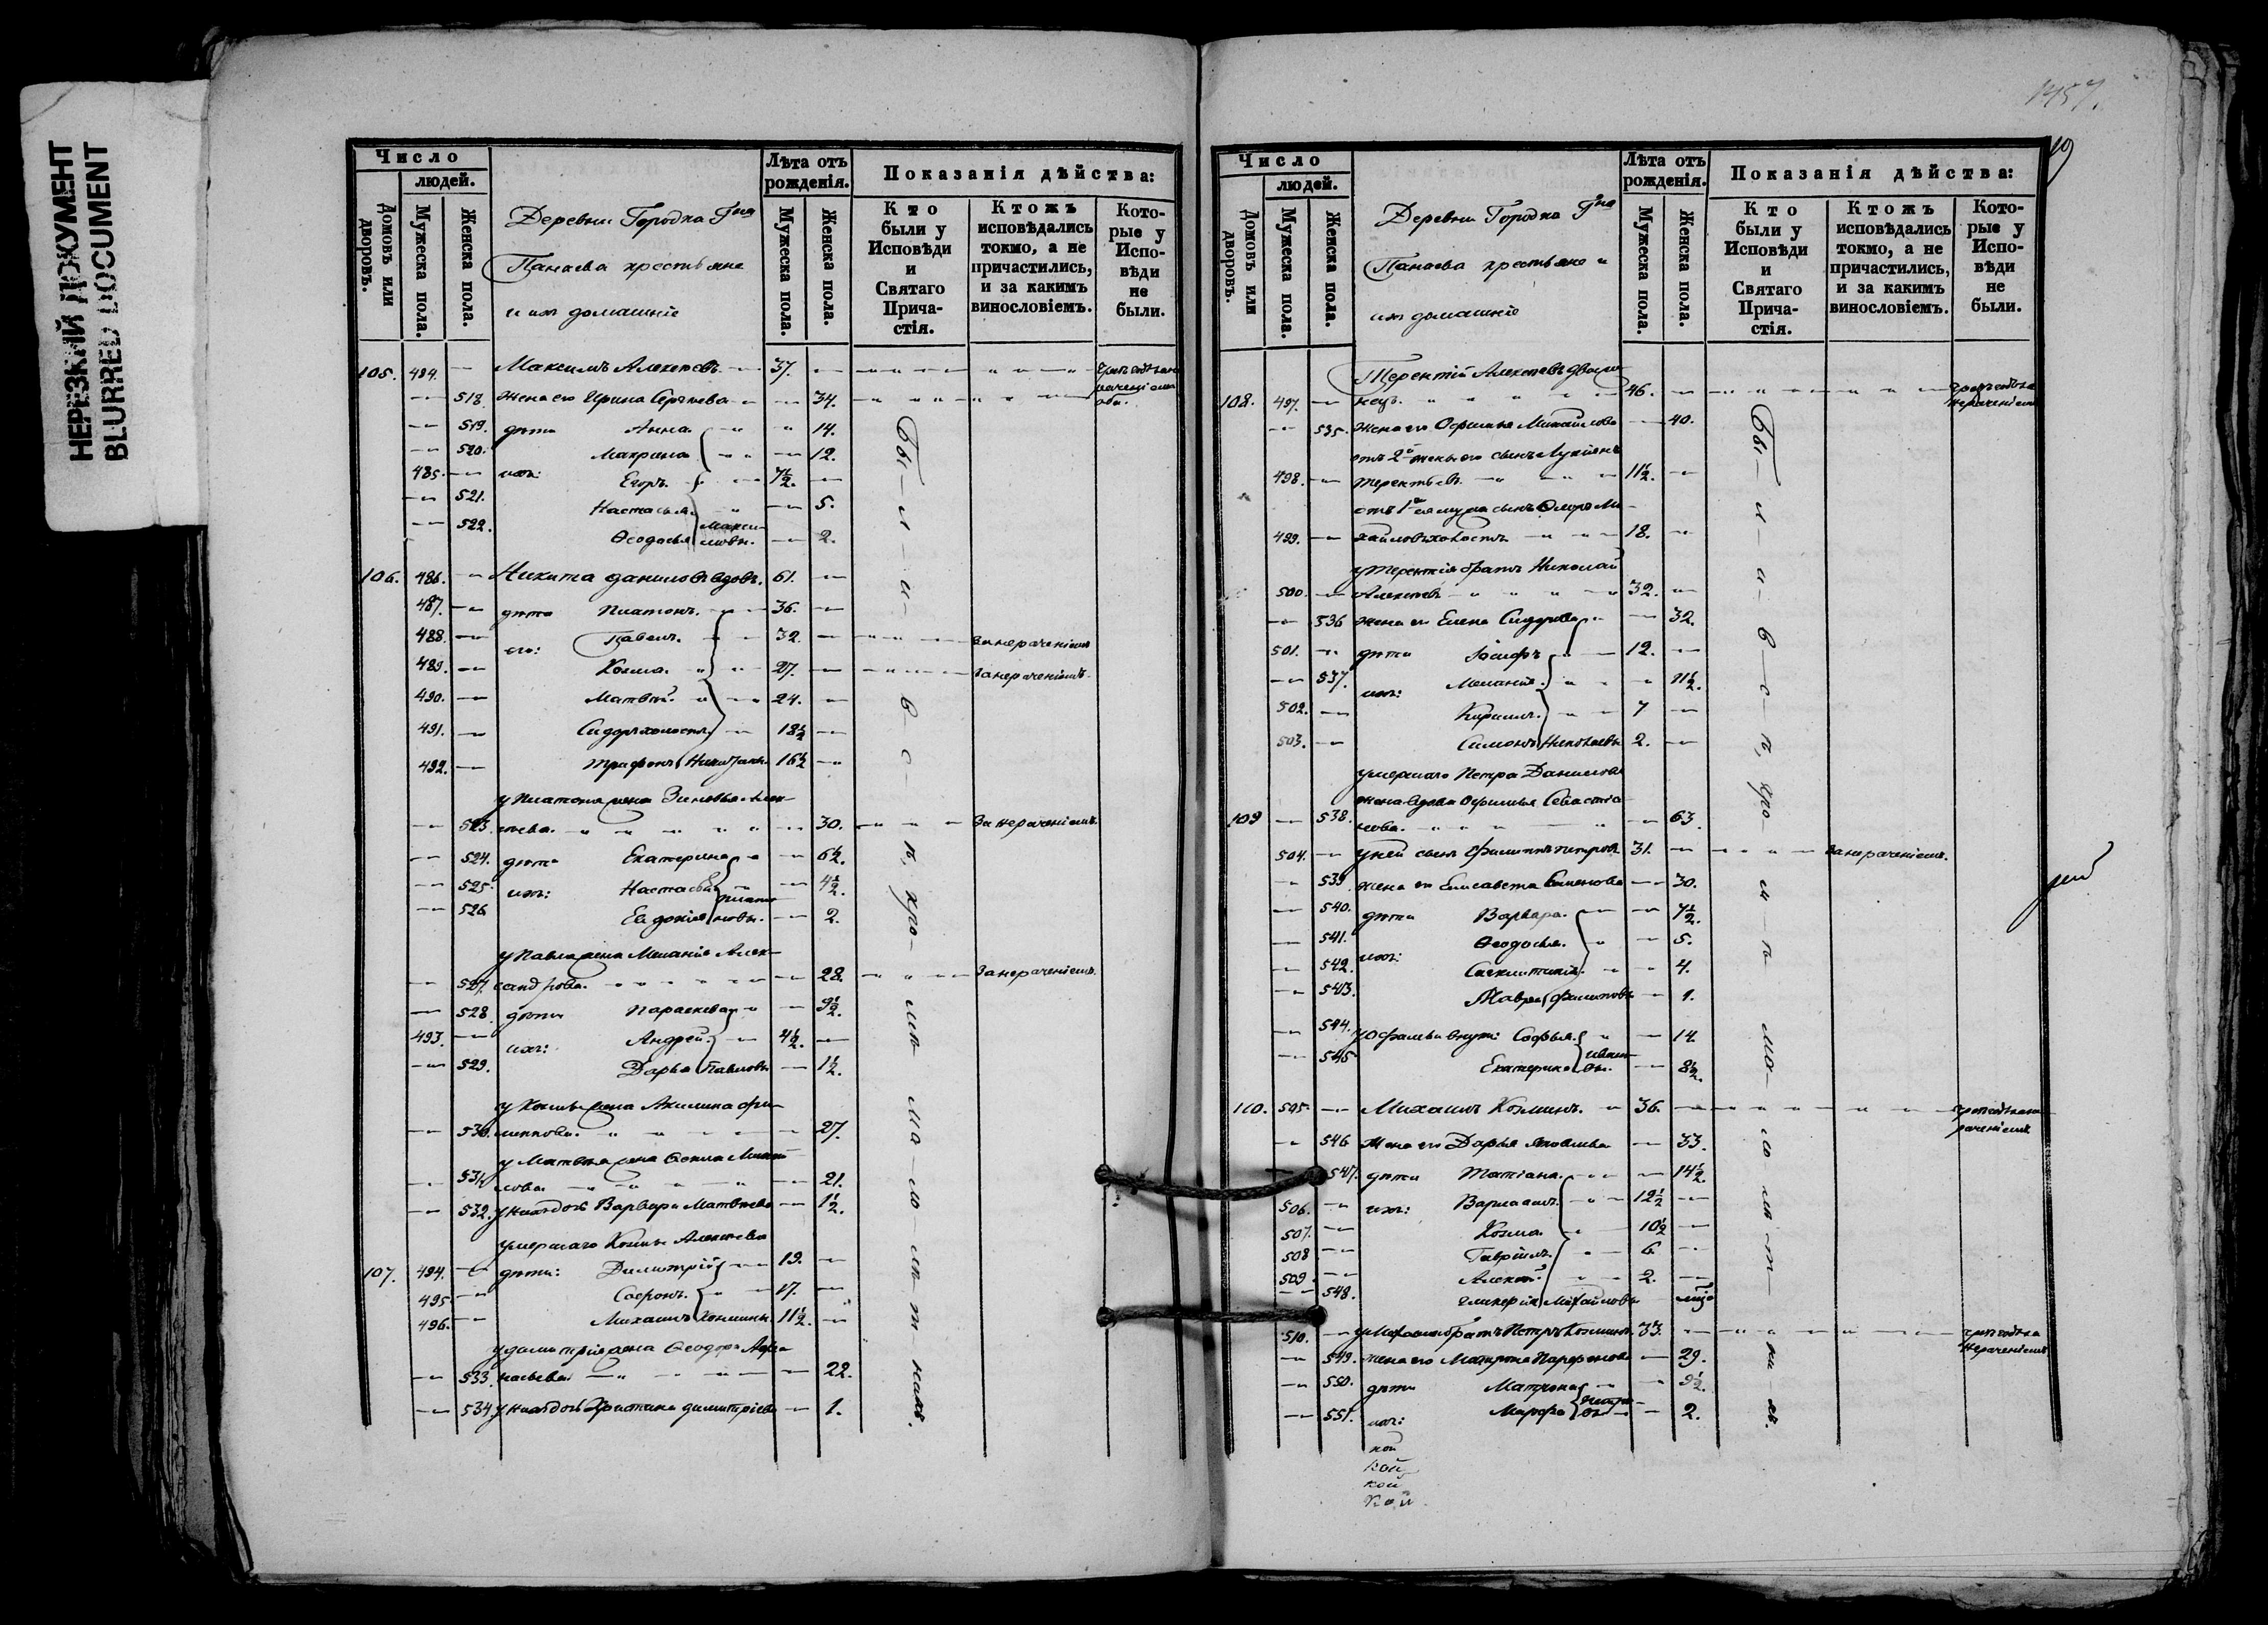 НЕРЕЗКИЙ ДОКУМЕНТ
BLURRED DOCUMENT
Число
людей.
Домовъ или дворовъ.
Мужеска пола.
Женска пола.
Деревни Городка Гна
Панаева крестьяне
и ихъ домашніе
Лѣта отъ рожденія.
Мужеска пола.
Женска пола.
Показанія дѣйства:
Кто были у Исповѣди и Святаго Причастія.
Ктожъ исповѣдались токмо, а не причастились, и за какимъ винословіемъ.
Которые у Исповѣди не были.
105. 484. Максимъ Алексѣевъ 37.
518. жена его Ирина Сергѣева 34.
519. дѣти Анна 14.
520. Макрина 12.
485. ихъ: Егоръ 7½.
521. Настасья 5.
522. Ѳеодосья Максимовы. 2.
106. 486. Никита Даниловъ вдовъ. 61.
487. дѣти Платонъ. 36.
488. его: Павелъ. 32. за нераченіемъ
489. Козма. 27. за нераченіемъ.
490. Матвѣй. 24.
491. Сидоръ холостъ 18½
492. Трифонъ Никитины 16½
у Платона жена Зиновья Алек-
523. сѣева. 30. за нераченіемъ.
524. дѣти Екатерина 6½.
525. ихъ: Настасья 4½.
526 Евдокія Платоновы. 2.
у Павла жена Меланія Алек-
527. сандрова. 28. за нераченіемъ.
528 дѣти Параскева 9½.
493. ихъ: Андрей 4½.
529. Дарья Павловы 1½.
у Козмы жена Акилина Фи-
530. липпова. 27.
у Матвѣя жена Ѳекла Михай-
531. лова 21.
532. у нихъ дочь Варвара Матвѣева 1½.
умершаго Козмы Алексѣева
107. 494. дѣти: Димитрій 19.
495. Софронъ. 17.
496. Михаилъ Козмины. 11½.
у Димитрія жена Ѳеодора Афа-
533. насьева 22.
534. у нихъ дочь Христина Димитріева 1.
1457.
Число
людей.
Домовъ или дворовъ.
Мужеска пола.
Женска пола.
Деревни Городка Гна
Панаева крестьяне и
ихъ домашніе
Лѣта отъ рожденія.
Мужеска пола.
Женска пола.
Показанія дѣйства:
Кто были у Исповѣди и Святаго Причастія.
Ктожъ исповѣдались токмо, а не причастились, и за какимъ винословіемъ.
Которые у Исповѣди не были.
Терентій Алексѣевъ двоже-
108. 497. нецъ. 46.
535. жена его Офимья Михайлова 40.
отъ 2й жены его сынъ Лукіянъ
498. Терентьевъ. 11½.
499. хайловъ холостъ 18.
у Терентія братъ Николай
500. Алексѣевъ 32.
536 жена его Елена Сидорова 32.
501. дѣти Іосифъ 12.
537. ихъ: Меланія 11½.
502. Кирилъ. 7
503. Симонъ Николаевы 2.
умершаго Петра Данилова
жена вдова Офимья Севастья-
109 538. нова. 63.
504. у ней сынъ Филиппъ Петровъ 31. за нераченіемъ.
539 жена его Елисавета Семенова 30.
540. дѣти Варвара. 7½.
541. Ѳеодосья. 5.
542. ихъ: 4.
543. Мавра Филиповы 1.
544. у Офимьи внуки: Софья 14.
545 Екатерина Ивановы. 8½.
110. 505. Михаилъ Козминъ. 36.
546 жена его Дарья Яковлева 33.
547. дѣти Татіана. 14½.
506. ихъ: Варлаамъ. 12½
507. Козма 10½
508 Гавріилъ. 6
509. Алексѣй 2.
548. Гликерія Михайловы
510. у Михаила братъ Петръ Козминъ. 33.
549. жена его Матрона Парфенова 29.
550. дѣти Матрона 9½.
551. ихъ: Марфа Петровы 2.
кой
кой
кой
кой